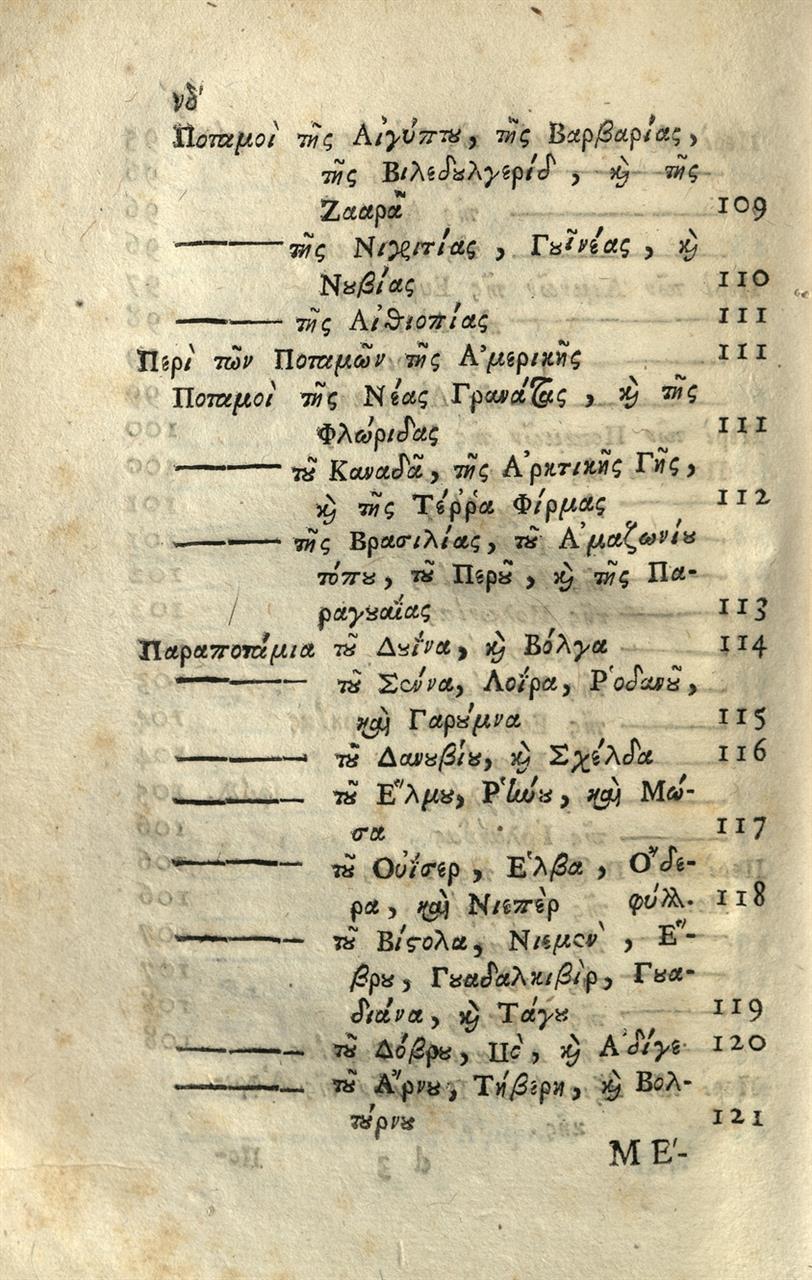 νδ'
Ποταμοὶ τῆς Αἰγύπτȣ, τῆς Βαρβαρίας,
τῆς Βιλεδȣλγερίδ, ϗ̀ τῆς
Ζααρᾶ 109
—— τῆς Νιγριτίας, Γȣῖνέας, ϗ̀
Νȣβίας 110
—— τῆς Αἰθιοπίας 111
Περὶ τῶν Ποταμῶν τῆς Ἀμερικῆς 111
Ποταμοὶ τῆς Νέας Γρανάτας, ϗ̀ τῆς
Φλώριδας 111
—— τȣ͂ Καναδᾶ, τῆς Ἀρκτικῆς Γῆς,
ϗ̀ τῆς Τέῤῥα Φίρμας 112
—— τῆς Βρασιλίας, τȣ͂ Ἀμαζωνίȣ
τόπȣ, τȣ͂ Περȣ͂, ϗ̀ τῆς Πα-
ραγȣαΐας 113
Παραποτάμια τȣ͂ Δȣΐνα, ϗ̀ Βόλγα 114
—— τȣ͂ Σένα, Λοΐρα, Ῥοδανȣ͂,
καὶ Γαρȣ́μνα 115
—— τȣ͂ Δανȣβίȣ, ϗ̀ Σχέλδα 116
—— τȣ͂ Ἔλμȣ, Ῥήνȣ, καὶ Μώ-
σα 117
—— τȣ͂ Οὐίσερ, Ἔλβα, Ὄδε-
ρα, καὶ Νιεπὲρ φύλλ. 118
—— τȣ͂ Βίςολα, Νιεμὲν, Ἔ-
βρȣ, Γȣαδαλκιβὶρ, Γȣα-
διάνα, ϗ̀ Τάγȣ 119
—— τȣ͂ Δόβρȣ, Πὸ, ϗ̀ Ἀδίγε 120
—— τȣ͂ Ἄρνȣ, Τήβερη, ϗ̀ Βολ-
τȣ́ρνȣ 121
ΜΕ'-